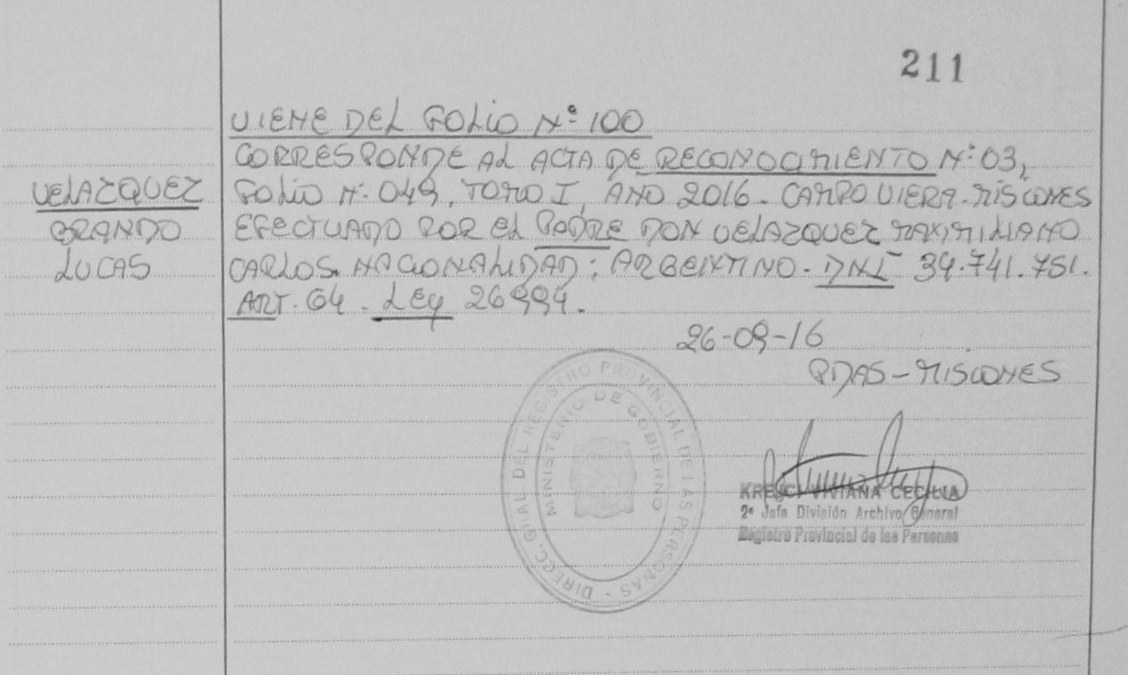 211
VIENE DEL FOLIO Nº 100
CORRESPONDE AL ACTA DE RECONOCIMIENTO Nº 03,
VELAZQUEZ
FOLIO Nº 049, TOMO I, AÑO 2016. CAMPO VIERA. MISIONES
BRANDO
EFECTUADO POR EL PADRE DON VELAZQUEZ MAXIMILIANO
LUCAS
CARLOS. NACIONALIDAD: ARGENTINO. DNI 34.741.751.
ART. 64. LEY 26994.
26-09-16
PDAS - MISIONES
DIRECC. GRAL DEL REGISTRO PROVINCIAL DE LAS PERSONAS
MINISTERIO DE GOBIERNO
KREJCI VIVIANA CECILIA
2ª Jefa División Archivo General
Registro Provincial de las Personas